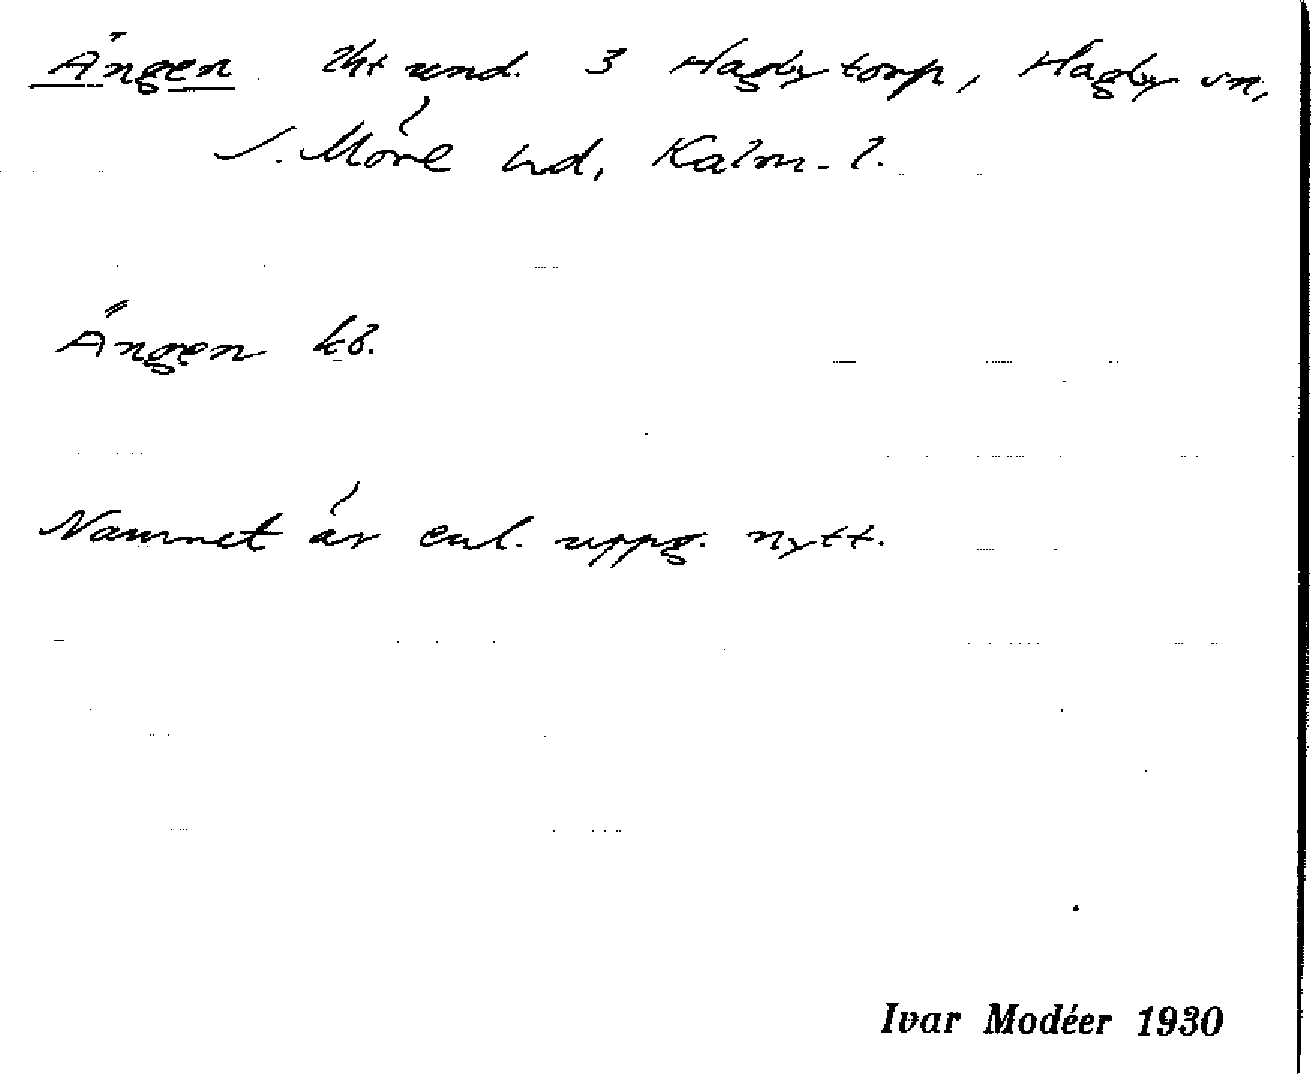 Ängen lht und. 3 Hagbytorp, Hagby sn,
S. Möre hd, Kalm. l.
Ängen kö.
Namnet är enl. uppg. nytt.
Ivar Modéer 1930